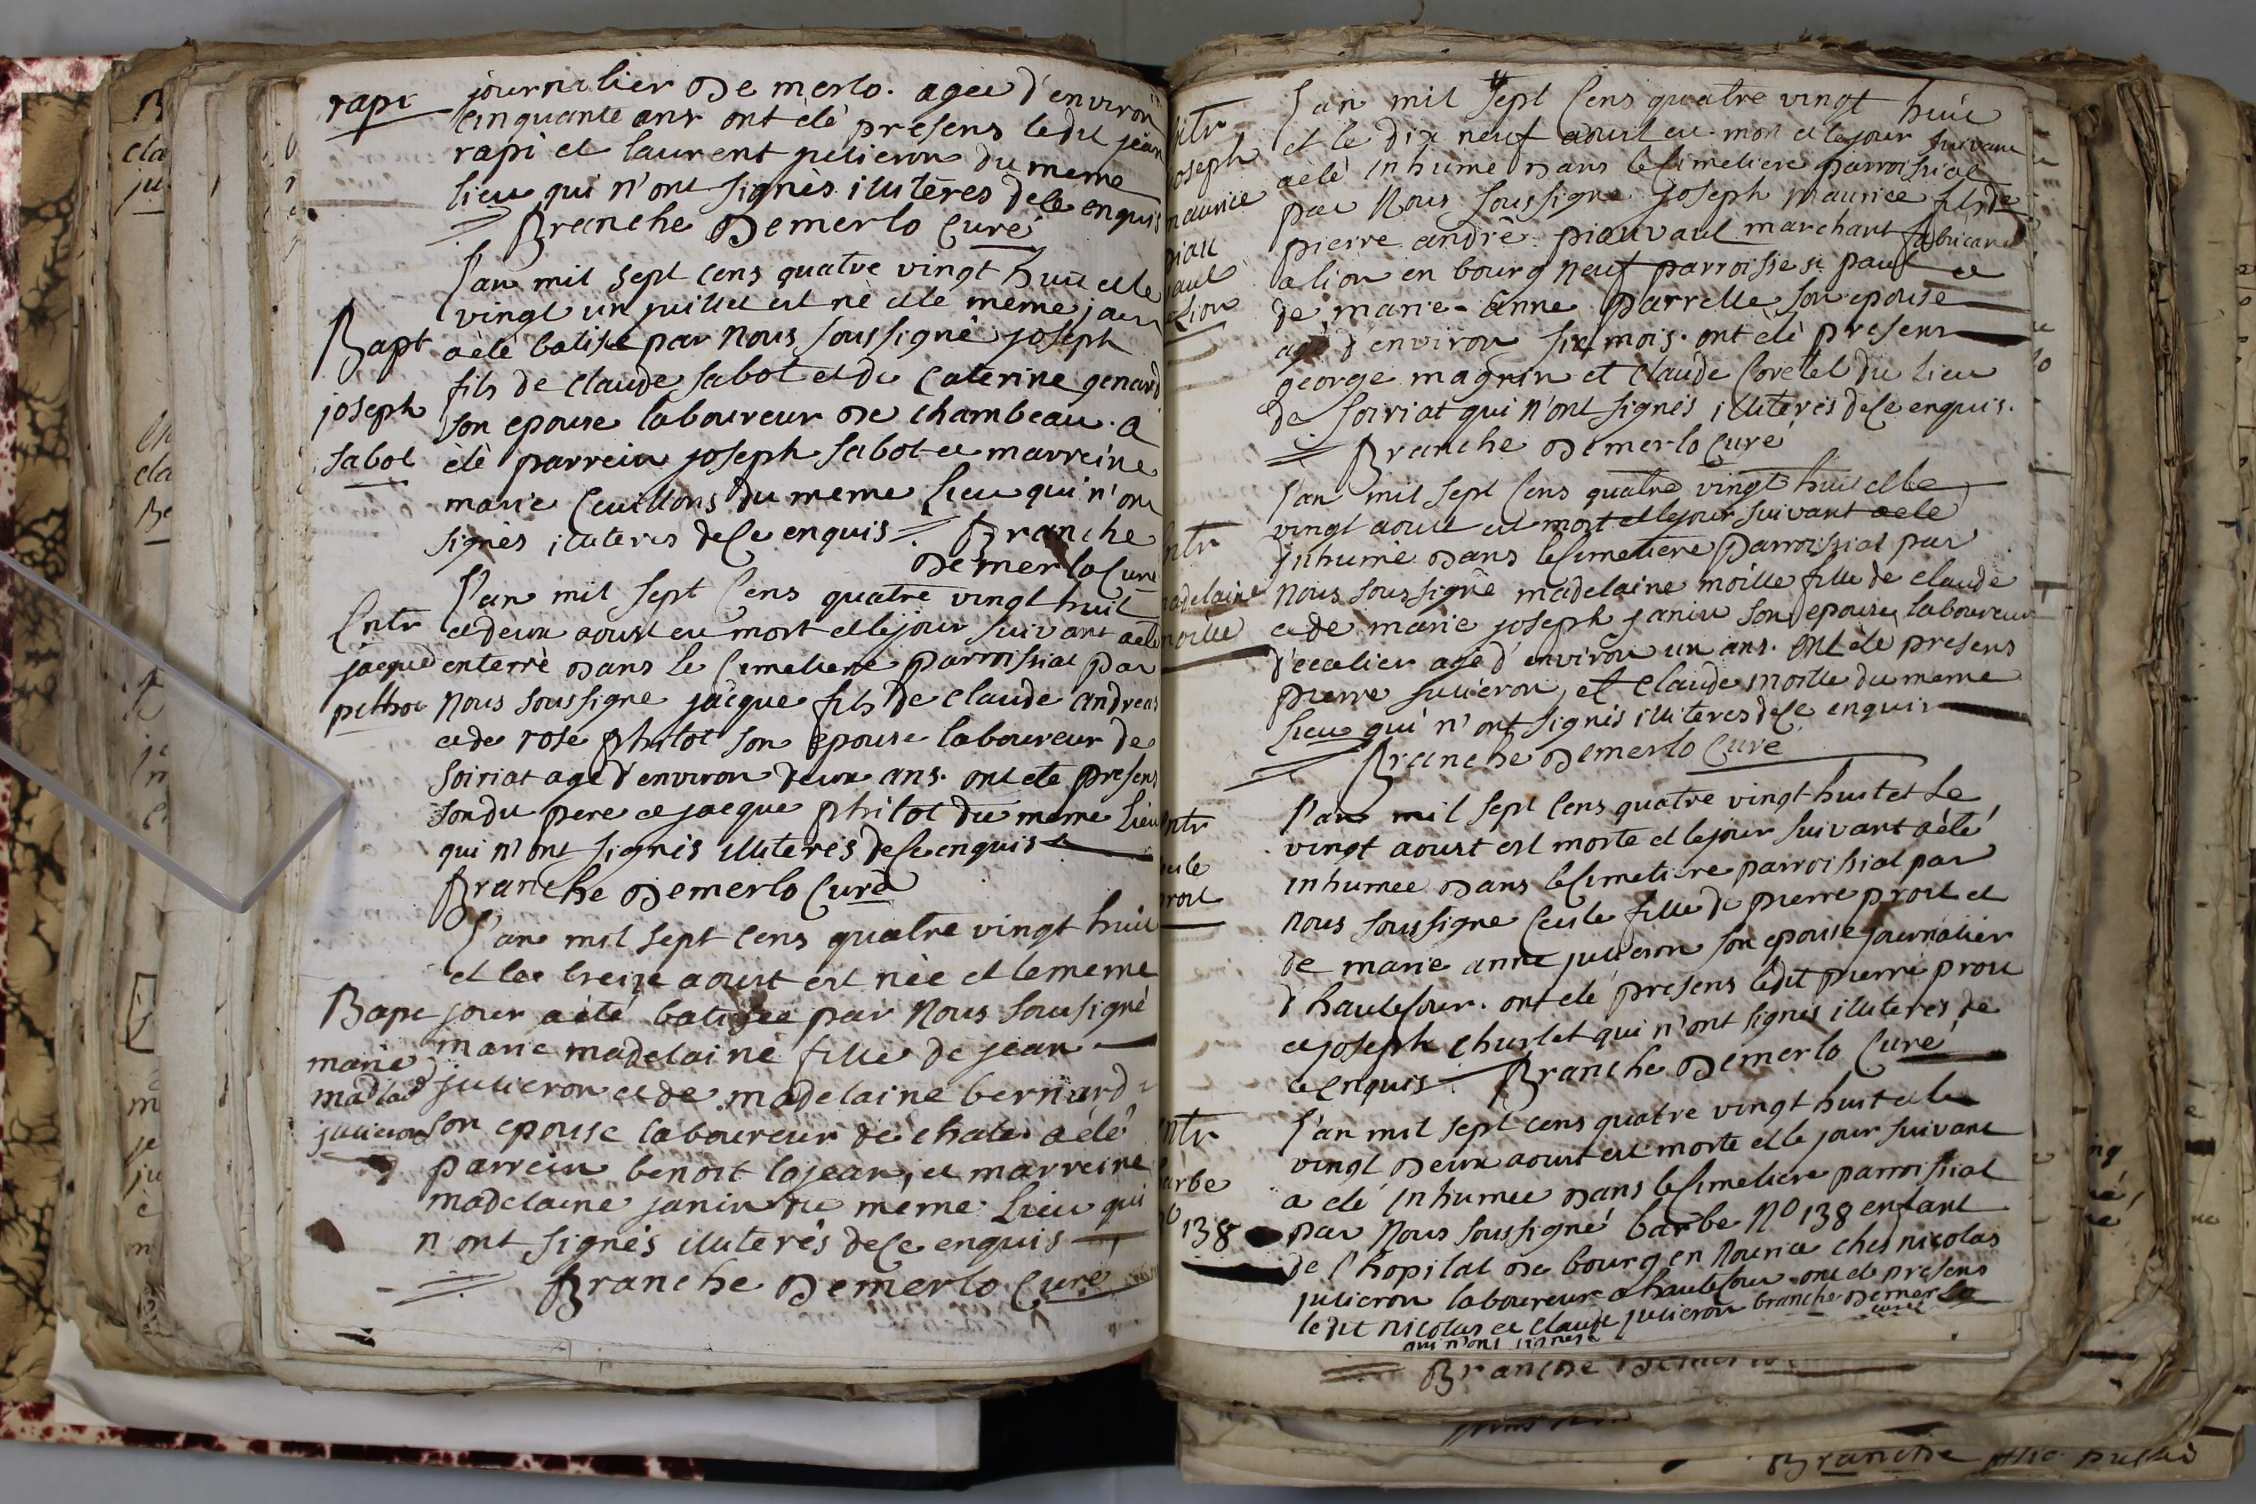 rapi
journalier De merlo. agee d'environ
cinquante ans ont été presens ledit jean
rapi et laurent juticron du meme
lieu qui n'ont signès illitéres de ce enquis
Branche Demerlo Curé
l'an mil sept cens quatre vingt huit et le
vingt un juillet est né et le meme jour
Bapt
a été batisé par nous soussigné joseph
fils de claude sabot et de caterine genard
joseph
son epouse laboureur de chambeau. a
sabot
eté parrein joseph sabot et marreine
marie Cuillons du meme lieu qui n'ont
signés illiteres de ce enquis Branche
Demerlo Curé
l'an mil sept cens quatre vingt huit
Entr
et deux aoust est mort et le jour suivant a eté
jacque
enterré dans le cimetiere parroissial par
pithot
nous soussigne jacque fils de claude andreas
et de rose philot son epouse laboureur de
soiriat age d'environ deux ans. ont ete presens
sondit pere et jacque philot du meme lieu
qui n'ont signés illiterés de ce enquis
Branche Demerlo Curé
l'an mil sept cens quatre vingt huit
et le treize aoust est née et le meme
Bapt
jour a été batisée par nous soussigné
marie
marie madelaine fille de jean
madlad
juticron et de madelaine bernard
juticron
son epouse laboureur de chate. a été
parrein benoit lajean, et marreine
madelaine janin du même lieu qui
n'ont signés illiterés de ce enquis
Branche Demerlo Curé
l'an mil sept cens quatre vingt huit
Entr
et le dix neuf aoust est mort et le jour suivant
joseph
a été inhumé dans le cimetiere parroissial
maurice
par nous soussigné joseph maurice fils de
piau
pierre andré piauvaut marchant fabricant
vaut
a lion en bourg neuf parroisse st paul et
Lion
de marie-anne parrelle son epouse
agé d'environ six mois. ont eté presens
george magnin et claude Coretel du lieu
de soiriat qui n'ont signés illiterés de ce enquis.
Branche Demerlo Curé
l'an mil sept cens quatre vingt huit et le
vingt aoust est mort et le jour suivant a eté
Entr
inhumé dans le cimetiere parroissial par
madelaine
nous soussigné madelaine moille fille de claude
moille
et de marie joseph janin son epouse laboureur
d'ecalier agé d'environ un ans. ont ete presens
pierre juticron, et claude moille du meme
lieu qui n'ont signés illiteres de ce enquis
Branche Demerlo Curé
l'an mil sept cens quatre vingt huit et le
Entr
vingt aoust est morte et le jour suivant a été
inhumee dans le cimetiere parroissial par
proit
nous soussigne Ceule fille de pierre proit et
de marie anne juticron son epouse journalier
d'hautecour. ont eté presens ledit pierre proit
et joseph churlet qui n'ont signés illiterés de
ce enquis Branche Demerlo Curé
l'an mil sept cens quatre vingt huit et le
Entr
vingt deux aoust est morte et le jour suivant
barbe
a eté inhumee dans le cimetiere parroissial
no 138
par nous soussigné barbe no 138 enfant
de l'hopital de bourg en nourice ches nicolas
juticron laboureur a hautecour ont ete presens
ledit nicolas et claude juticron branche Demerlo
qui n'ont signés curé
Branche Demerlo
Branche